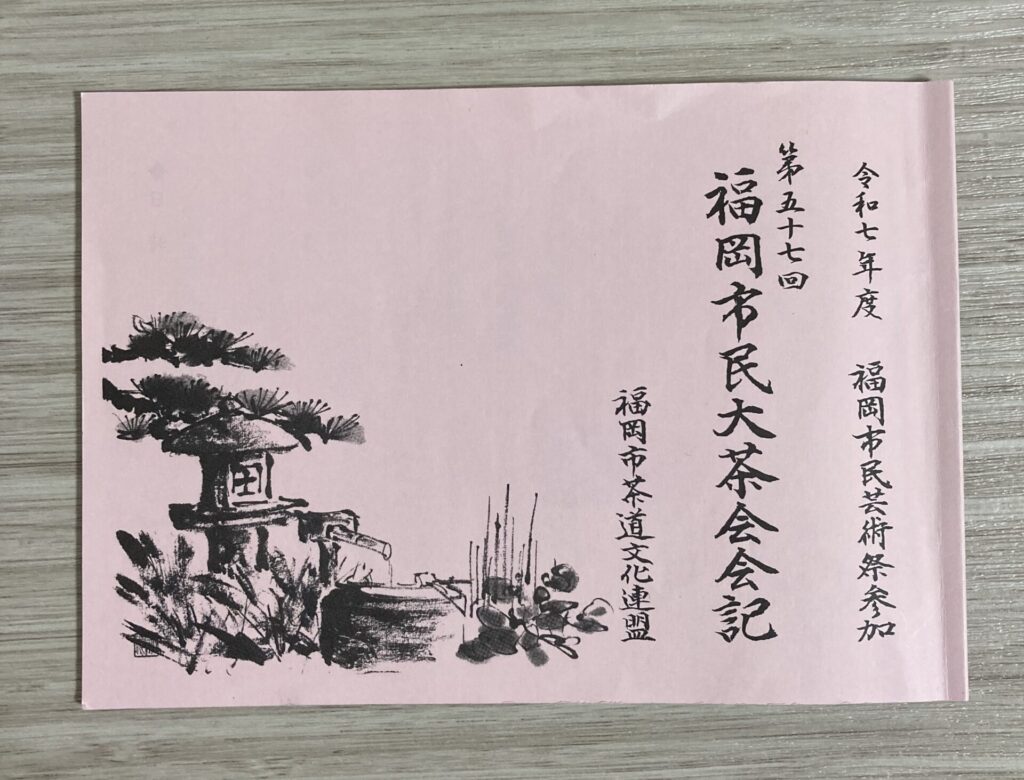 令和七年度　福岡市民芸術祭参加
第五十七回
福岡市民大茶会会記
福岡市茶道文化連盟